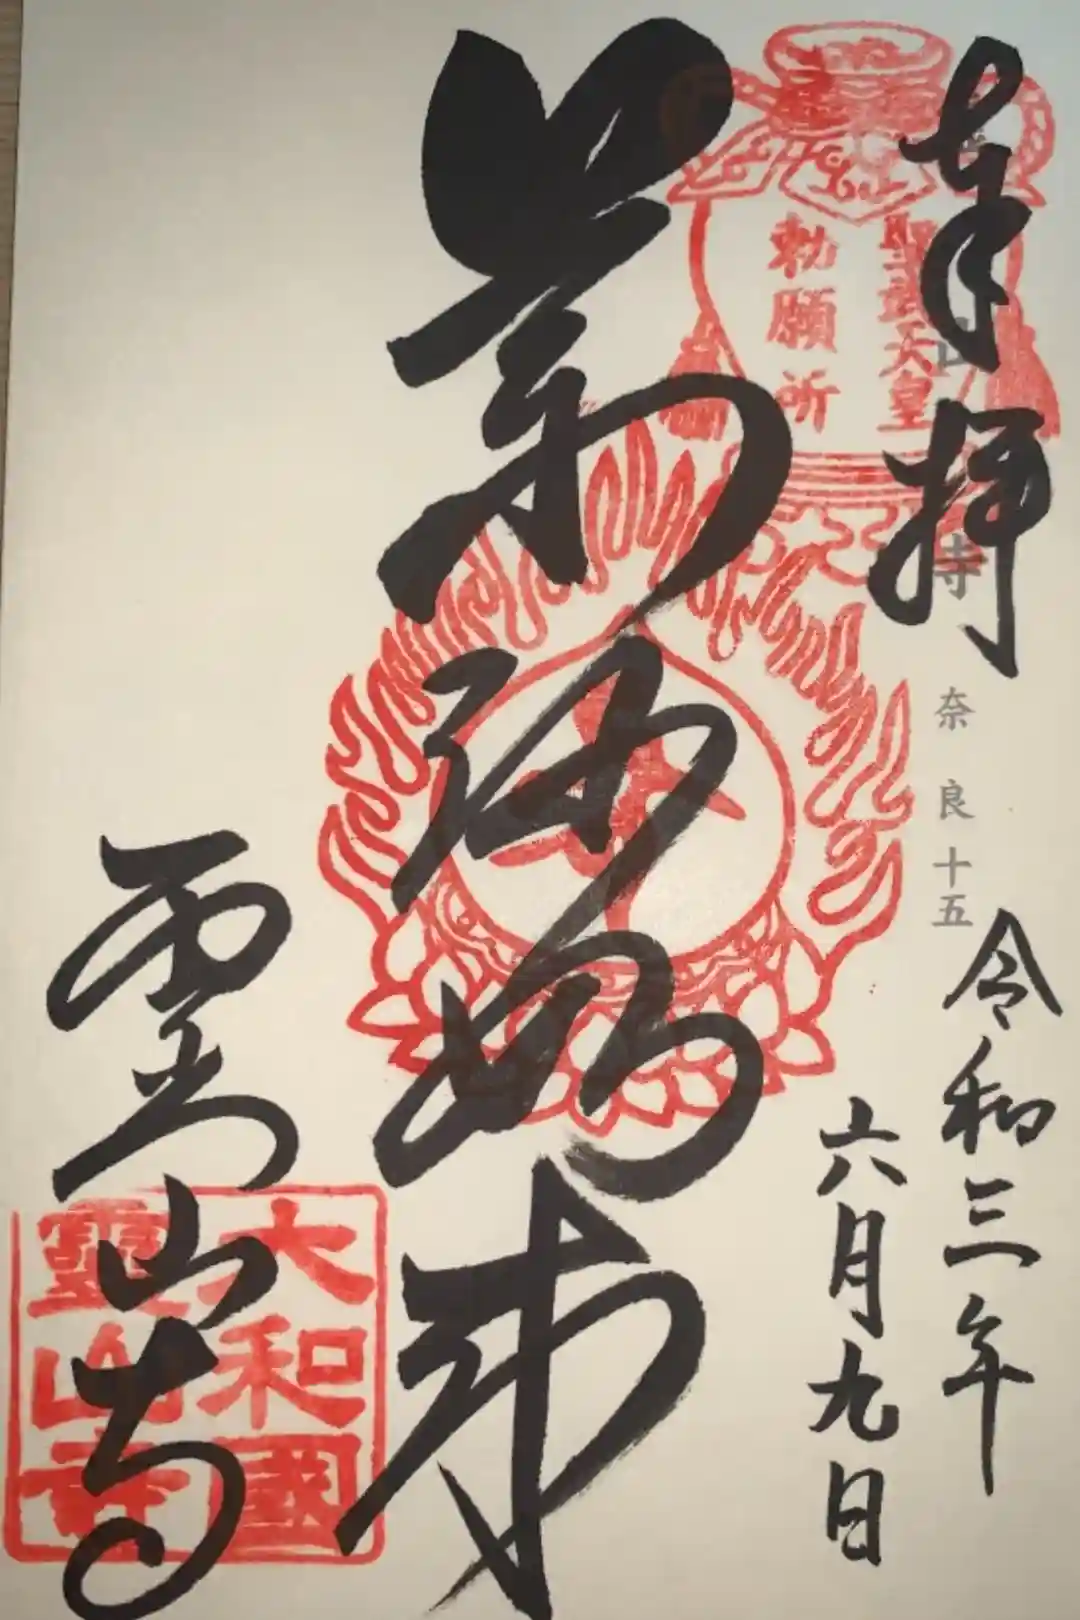 奉拝
令和三年
六月九日
寺
奈良十五
聖武天皇
勅願所
薬師如来
霊山寺
大和國
靈山寺